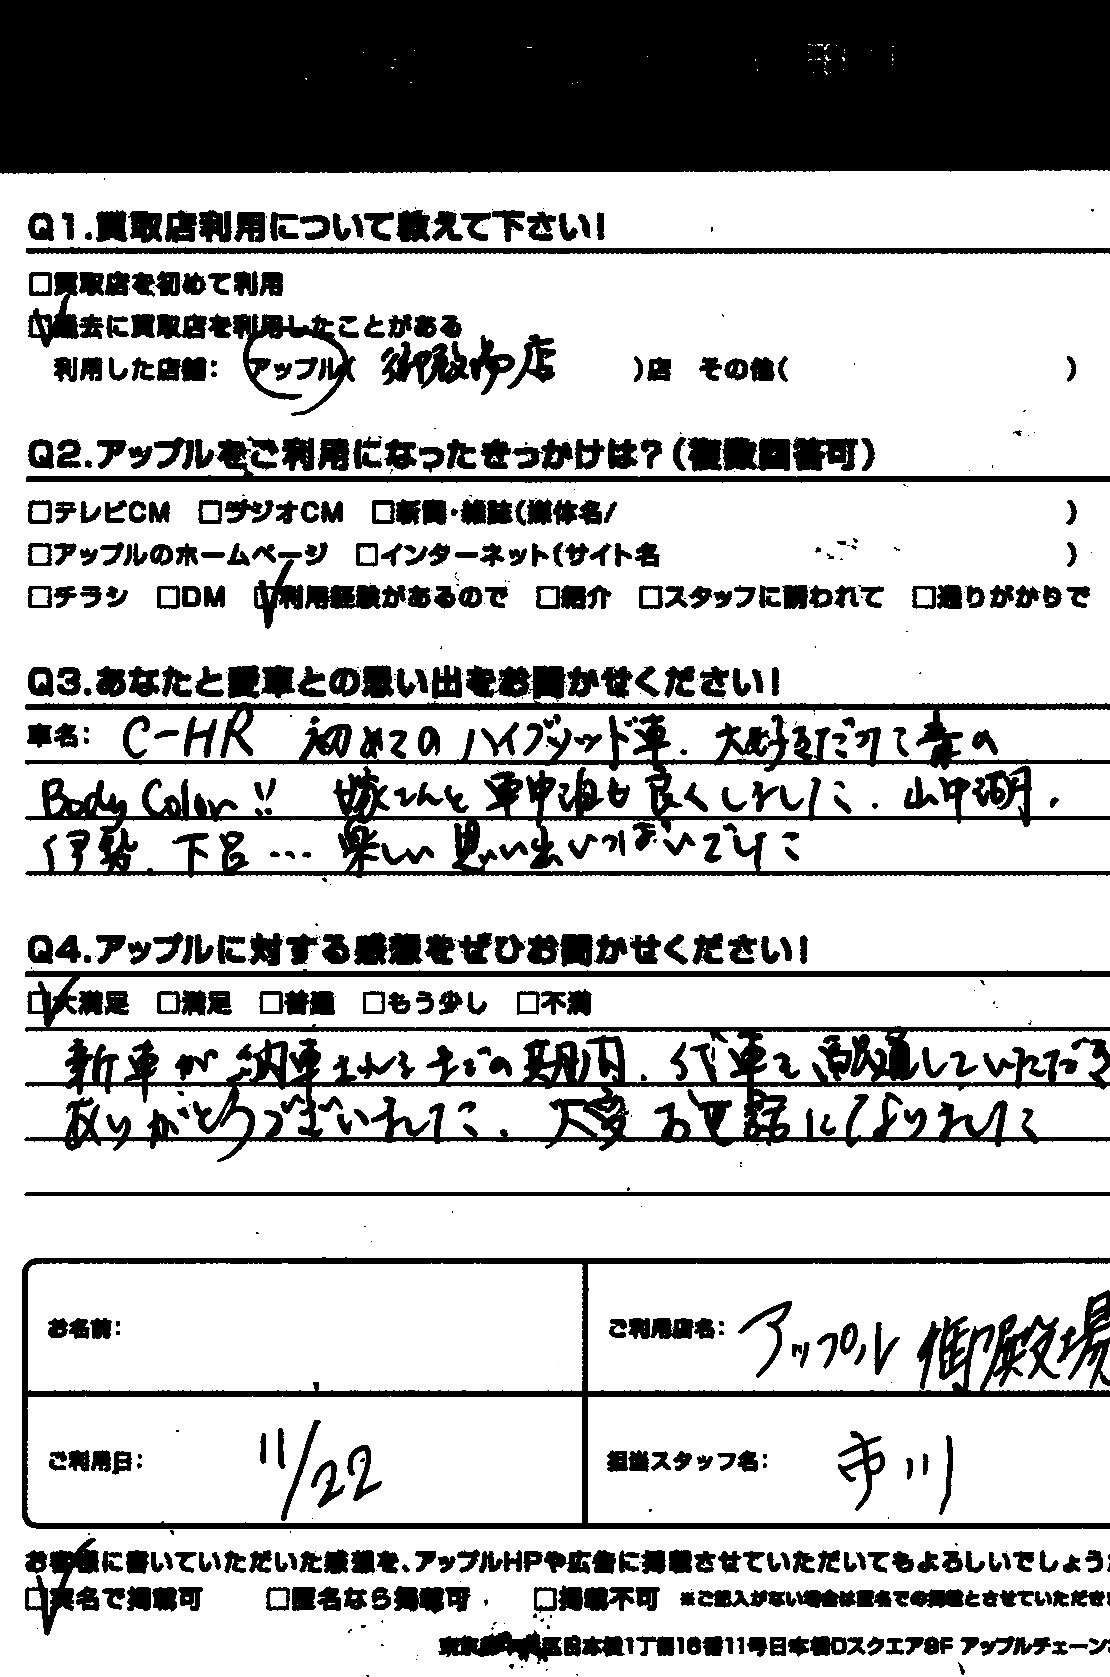 Q1.買取店利用について教えて下さい!
□買取店を初めて利用
☑過去に買取店を利用したことがある
利用した店舗: アップル( 御殿場店 )店 その他( )
Q2.アップルをご利用になったきっかけは?(複数回答可)
□テレビCM □ラジオCM □新聞・雑誌(媒体名/ )
□アップルのホームページ □インターネット(サイト名 )
□チラシ □DM ☑利用経験があるので □紹介 □スタッフに誘われて □通りがかりで
Q3.あなたと愛車との思い出をお聞かせください!
車名: C-HR 初めてのハイブリッド車. 大好きだって青の
Body Color!! 嫁さんと車中泊も良くしました. 山中湖.
伊勢. 下呂… 楽しい思い出いっぱいでした
Q4.アップルに対する感想をぜひお聞かせください!
☑大満足 □満足 □普通 □もう少し □不満
新車が納車されるまでの期間. 代車を融通していただき
ありがとうございました. 大変お世話になりました
お名前:
ご利用店名: アップル 御殿場
ご利用日: 11/22
担当スタッフ名: 市川
お客様に書いていただいた感想を、アップルHPや広告に掲載させていただいてもよろしいでしょう
☑実名で掲載可 □匿名なら掲載可 □掲載不可 ※ご記入がない場合は匿名での掲載とさせていただき
東京都中央区日本橋1丁目16番11号日本橋Dスクエア8F アップルチェーン